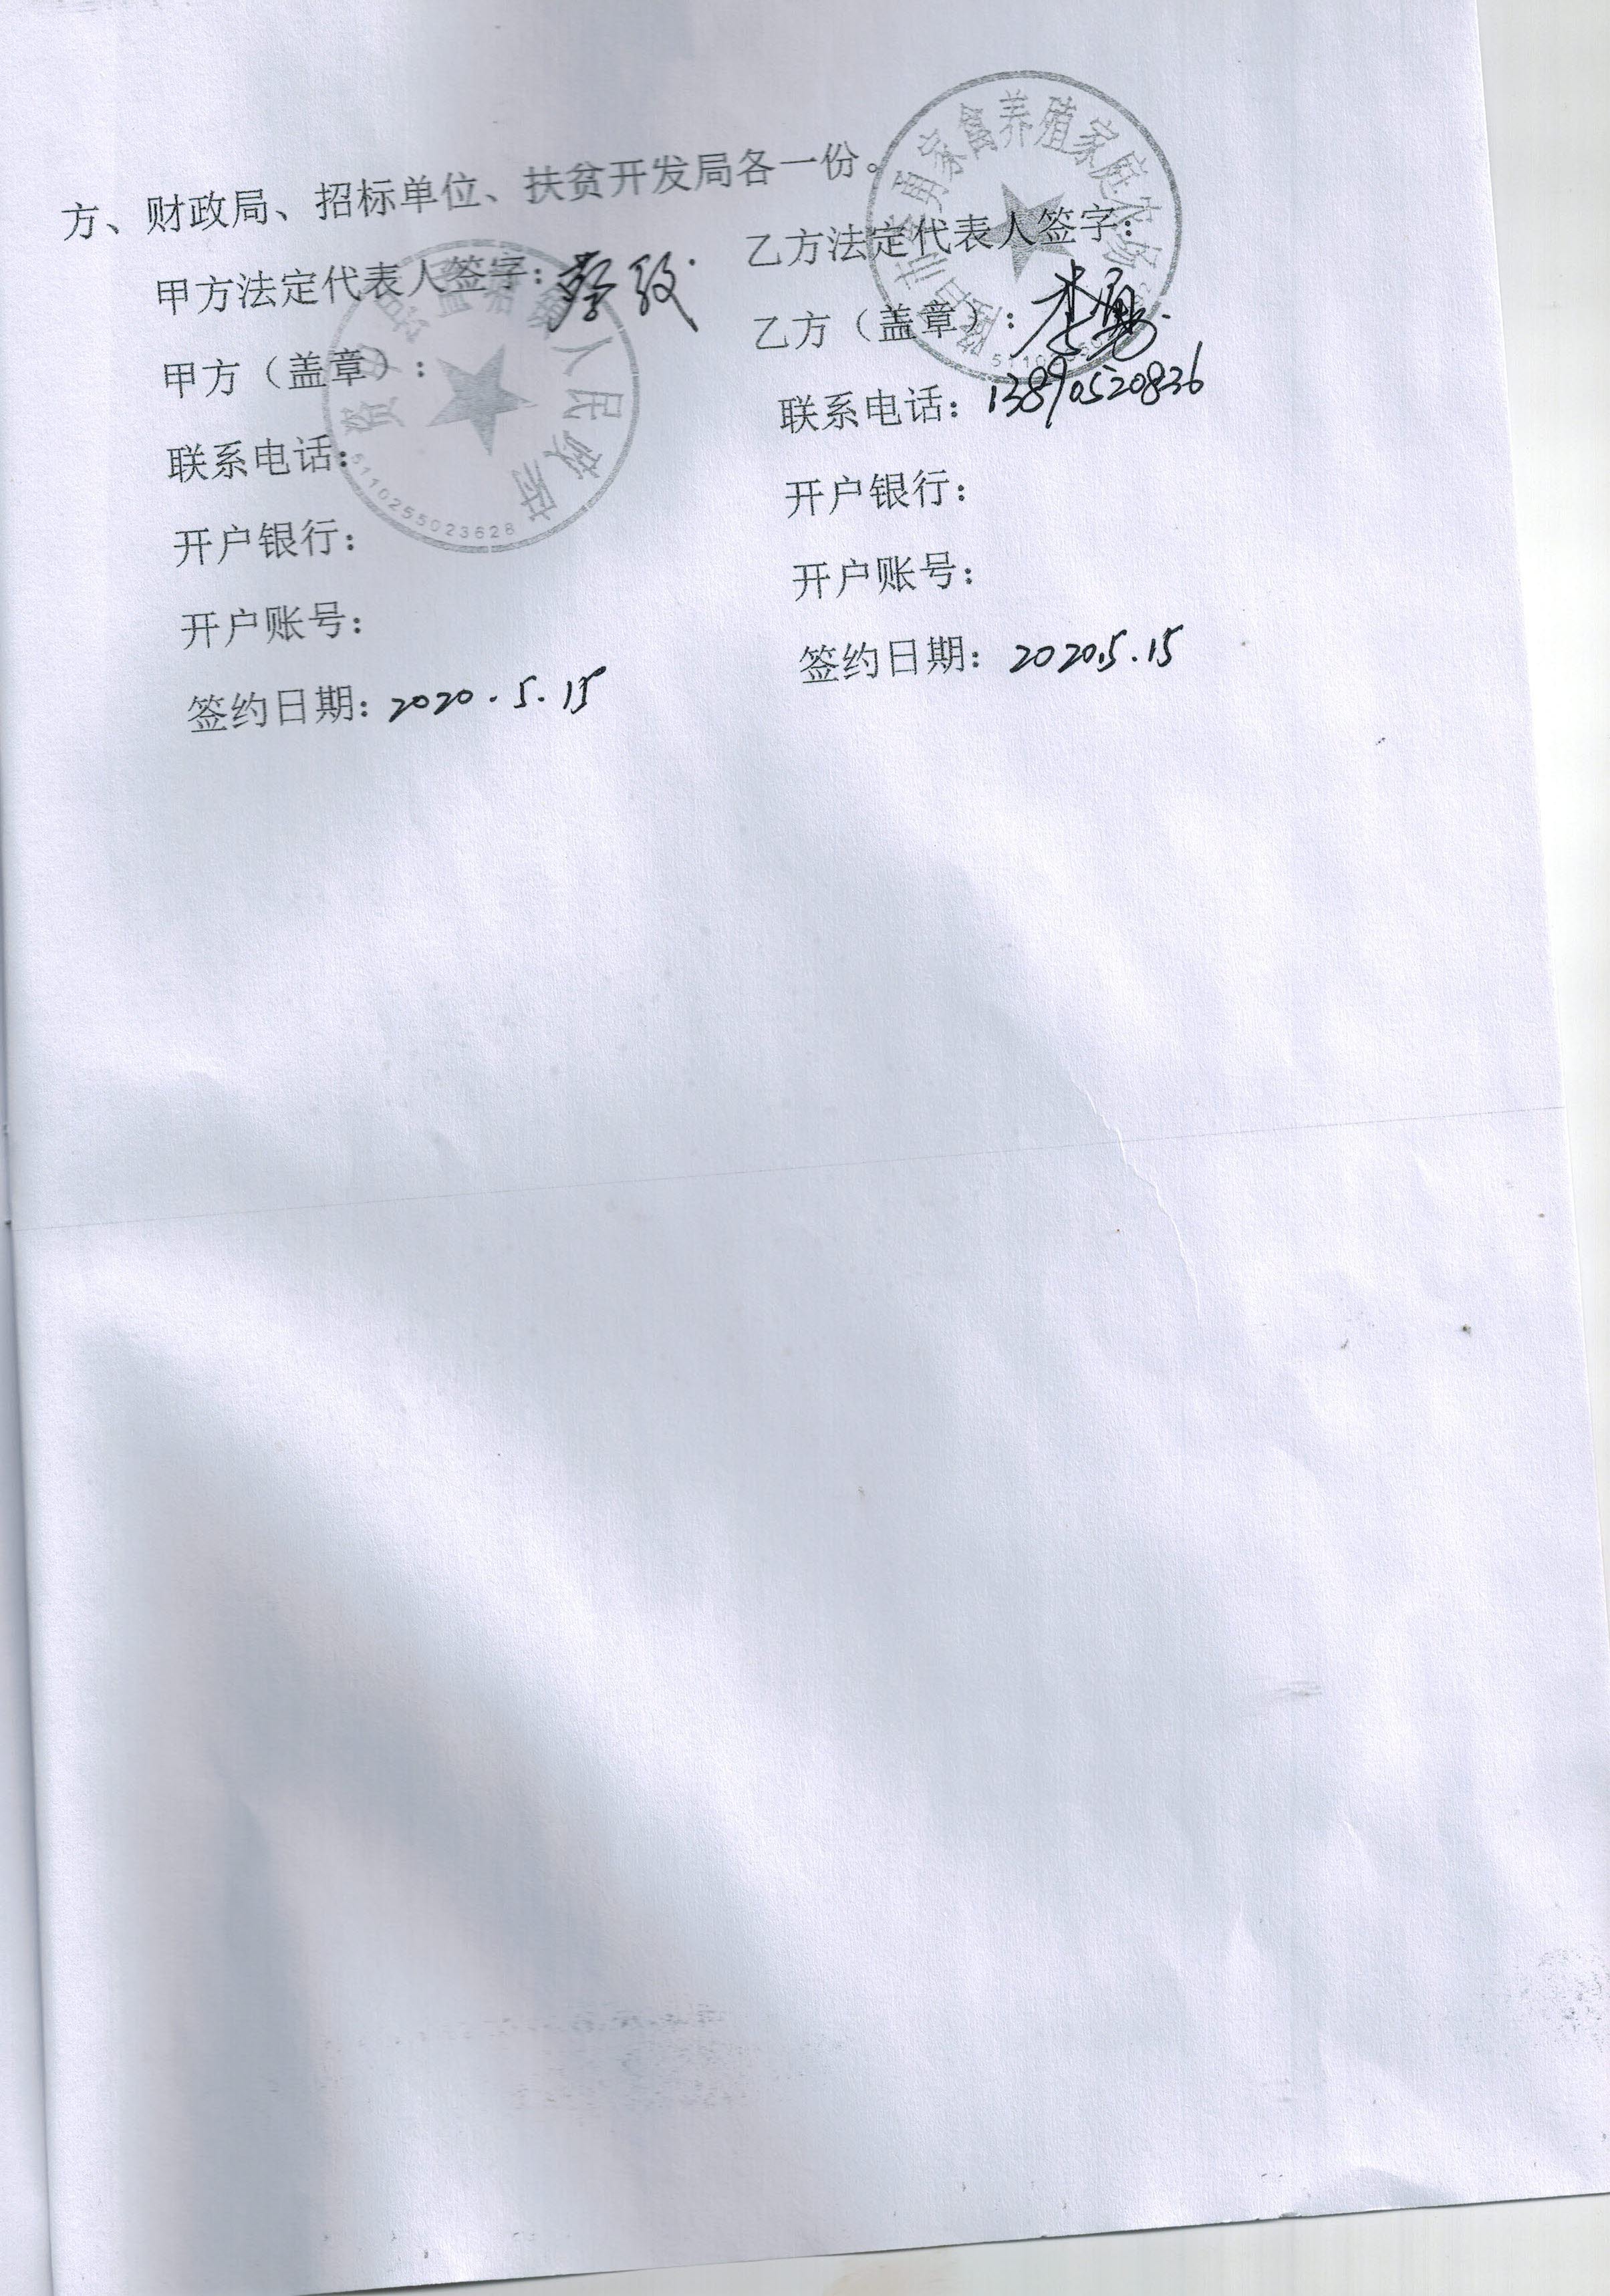 方、财政局、招标单位、扶贫开发局各一份。
甲方法定代表人签字：
甲方（盖章）：
联系电话：
开户银行：
开户账号：
签约日期：2020.5.15
人民政府
5110255023628
乙方法定代表人签字：
乙方（盖章）：李勇
联系电话：13890520836
开户银行：
开户账号：
签约日期：2020.5.15
家禽养殖家庭农场